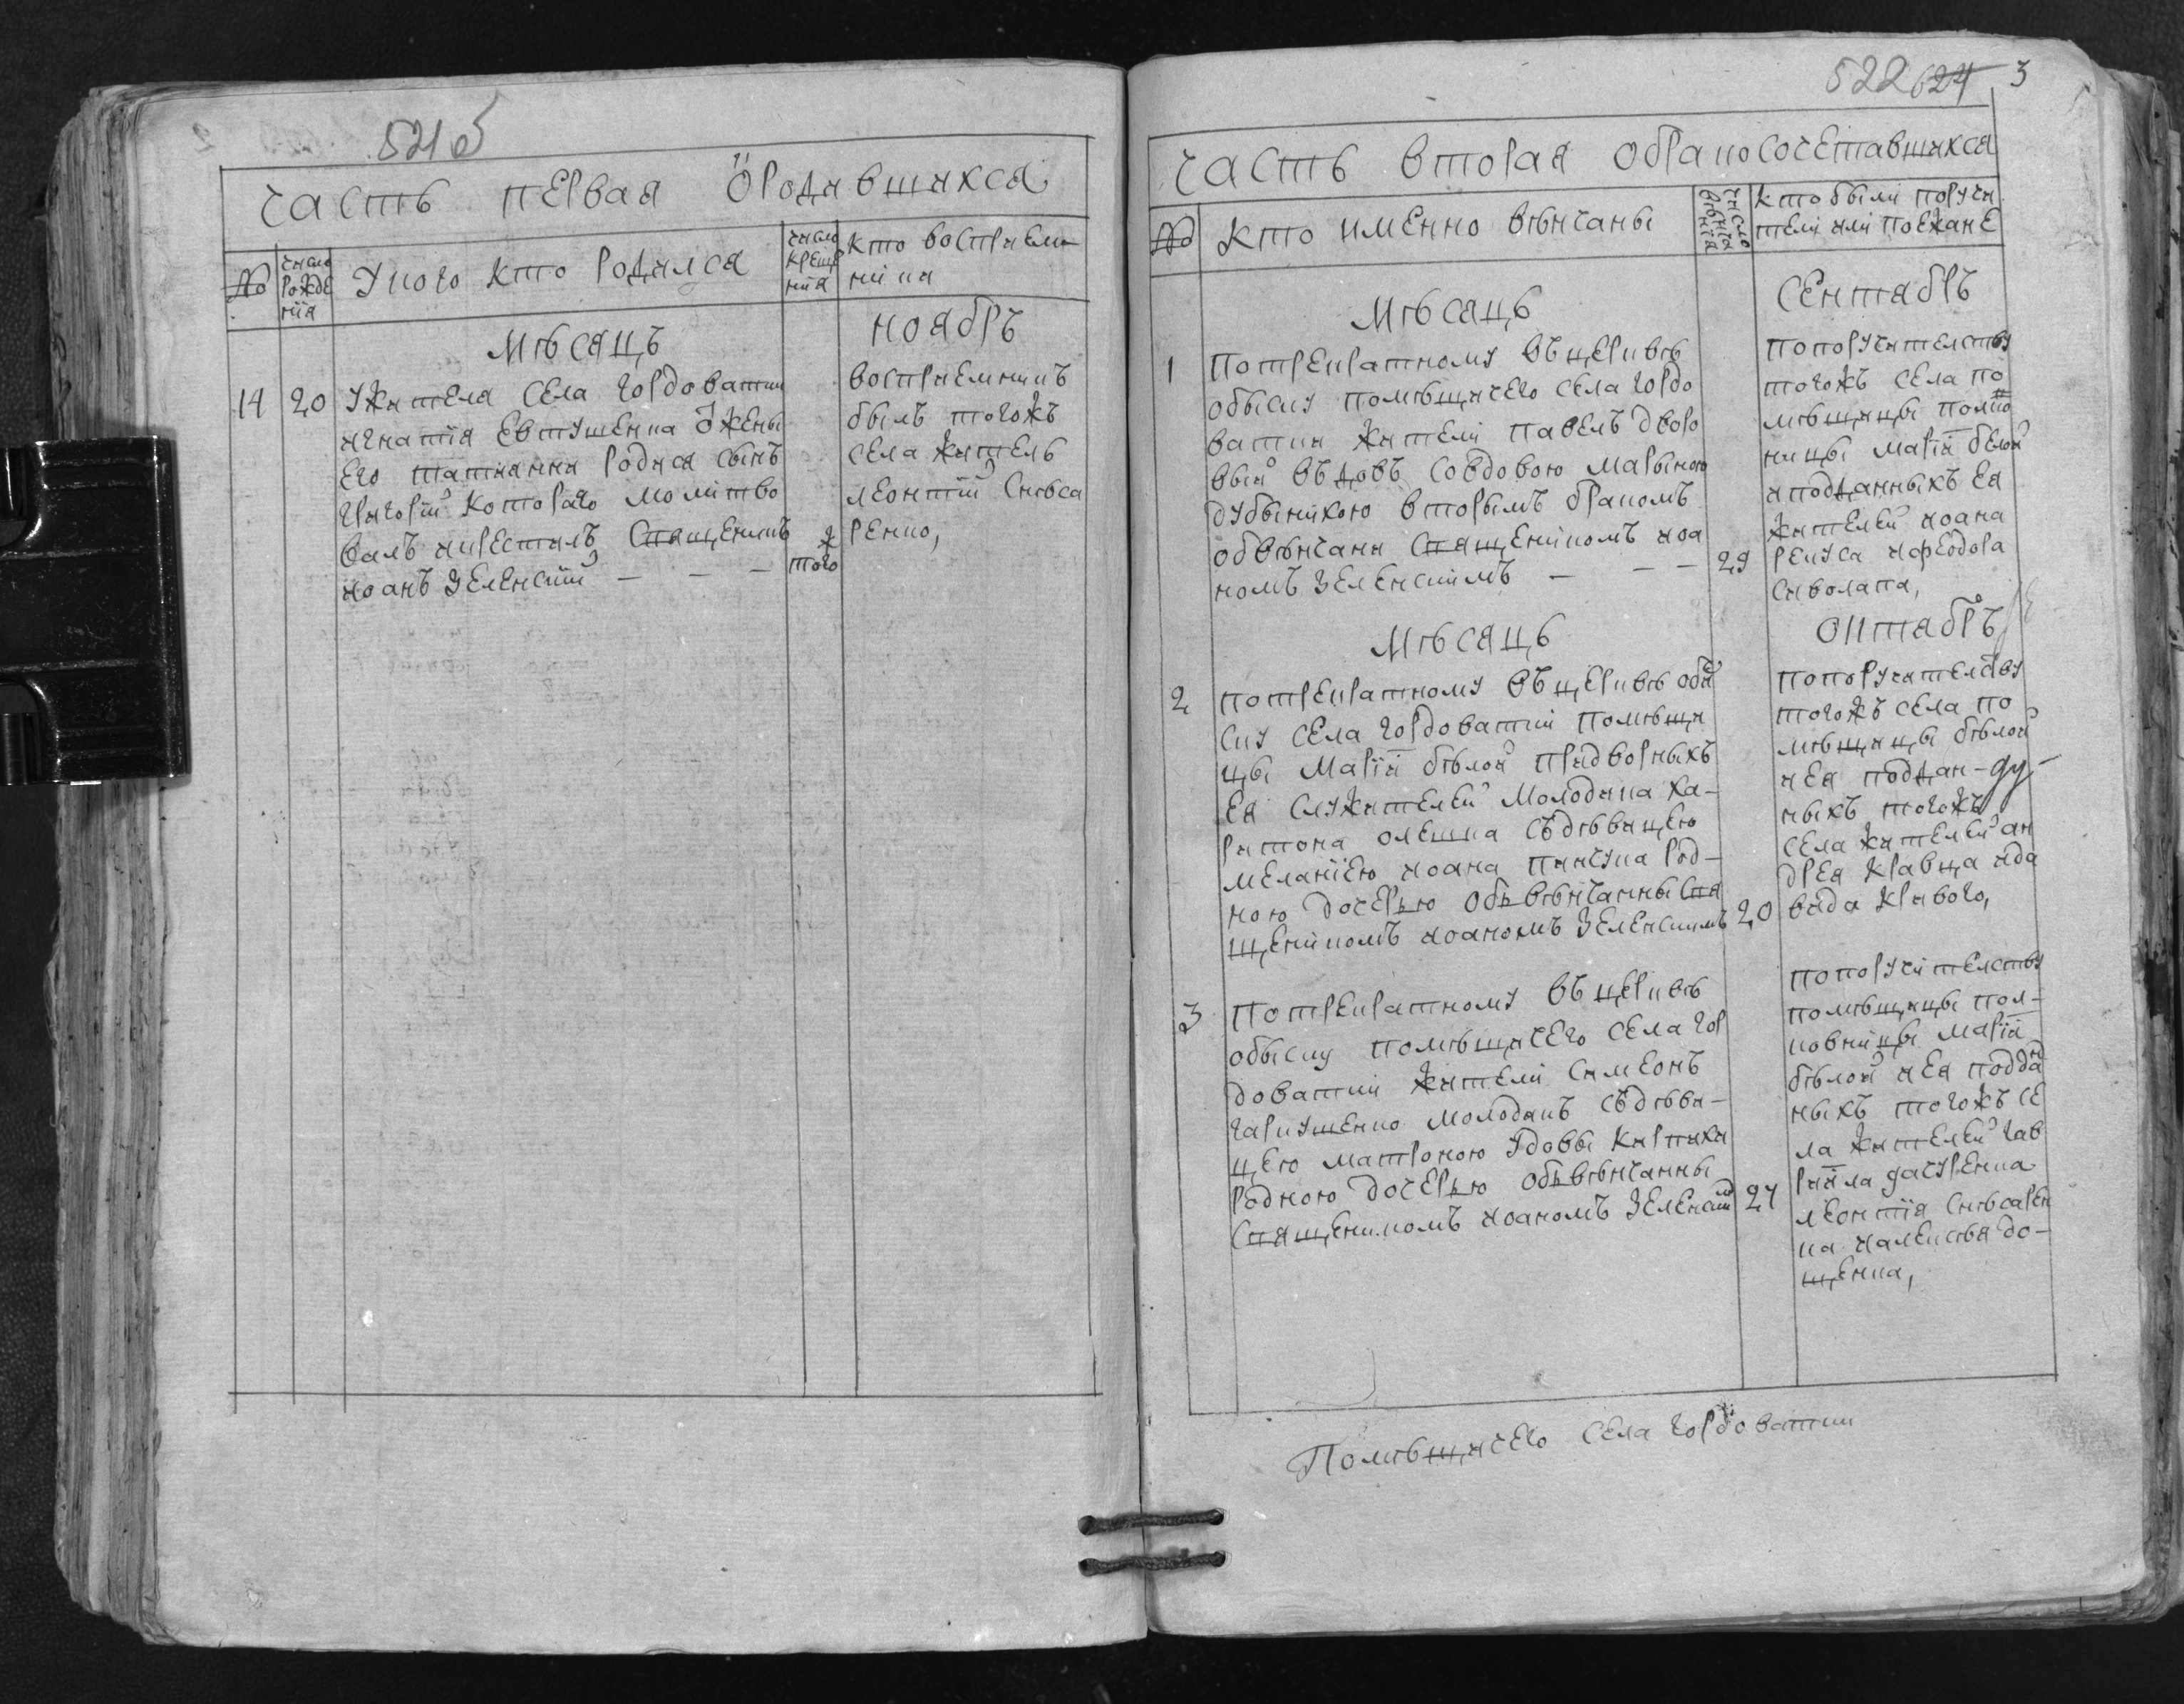 521 б
часть первая о родившихся
№
число рожде нїя
У кого кто родился
число креще нїя
кто воспрїем ники
мѣсяцъ
ноябръ
14
20
У жителя села Гордоватки
игнатїя Евтушенка ѿ жены
его татианни родися сынъ
григорїй котораго молитво
валъ и крестилъ священникъ
иоанъ Зеленскїй — — —
того ж
воспрїемникъ
былъ тогожъ
села житель
леонтїй снѣса
ренко,
522 624 3
часть вторая о бракосочетавшихся
№
кто именно вѣнчаны
число вѣнча нїя
кто были поручи
тели или поезжане
мѣсяць
сентябръ
1
по трекратному въ церквѣ
обыску помѣщичего села гордо
ватки жители павелъ дворо
вый въдовъ со вдовою марыною
дубынкою вторымъ бракомъ
обвѣнчани священникомъ иоа
номъ Зеленскимъ — — —
29
по поручителству
тогожъ села по
мѣщицы полко
ницы марїи белой
и подданныхъ ея
жителей иоана
рекуса и феодора
сиволапа,
мѣсяць
октябръ
2
по трекратному въ церквѣ обы
ску села гордоватки помѣщи
цы марїи бѣлой придворныхъ
ея служителей молодика ха-
ритона олешка съ дѣвицею
меланїею иоана пинчука род-
ною дочерью обвѣнчанны свя
щенникомъ иоаномъ Зеленскимъ
20
по поручителству
тогожъ села по
мѣщицы бѣлой
и ея поддан-
ныхъ тогожъ
села жителей ан
дрея кравца и да
вида кривого,
3
по трекратному въ церквѣ
обыску помѣщичего села гор
доватки жители симеонъ
гаркушенко молодикъ съ дѣви-
цею матроною удовы кирпихи
родною дочерью обвѣнчанны
священникомъ иоаномъ Зеленским
27
по поручителству
помѣщицы пол-
ковницы марїи
бѣлой и ея поддан
ныхъ тогожъ се
ла жителей гав
рїила дачуренка
леонтїя снѣсарен
ка и алексѣя до-
щенка,
Помѣщичего села гордоватки